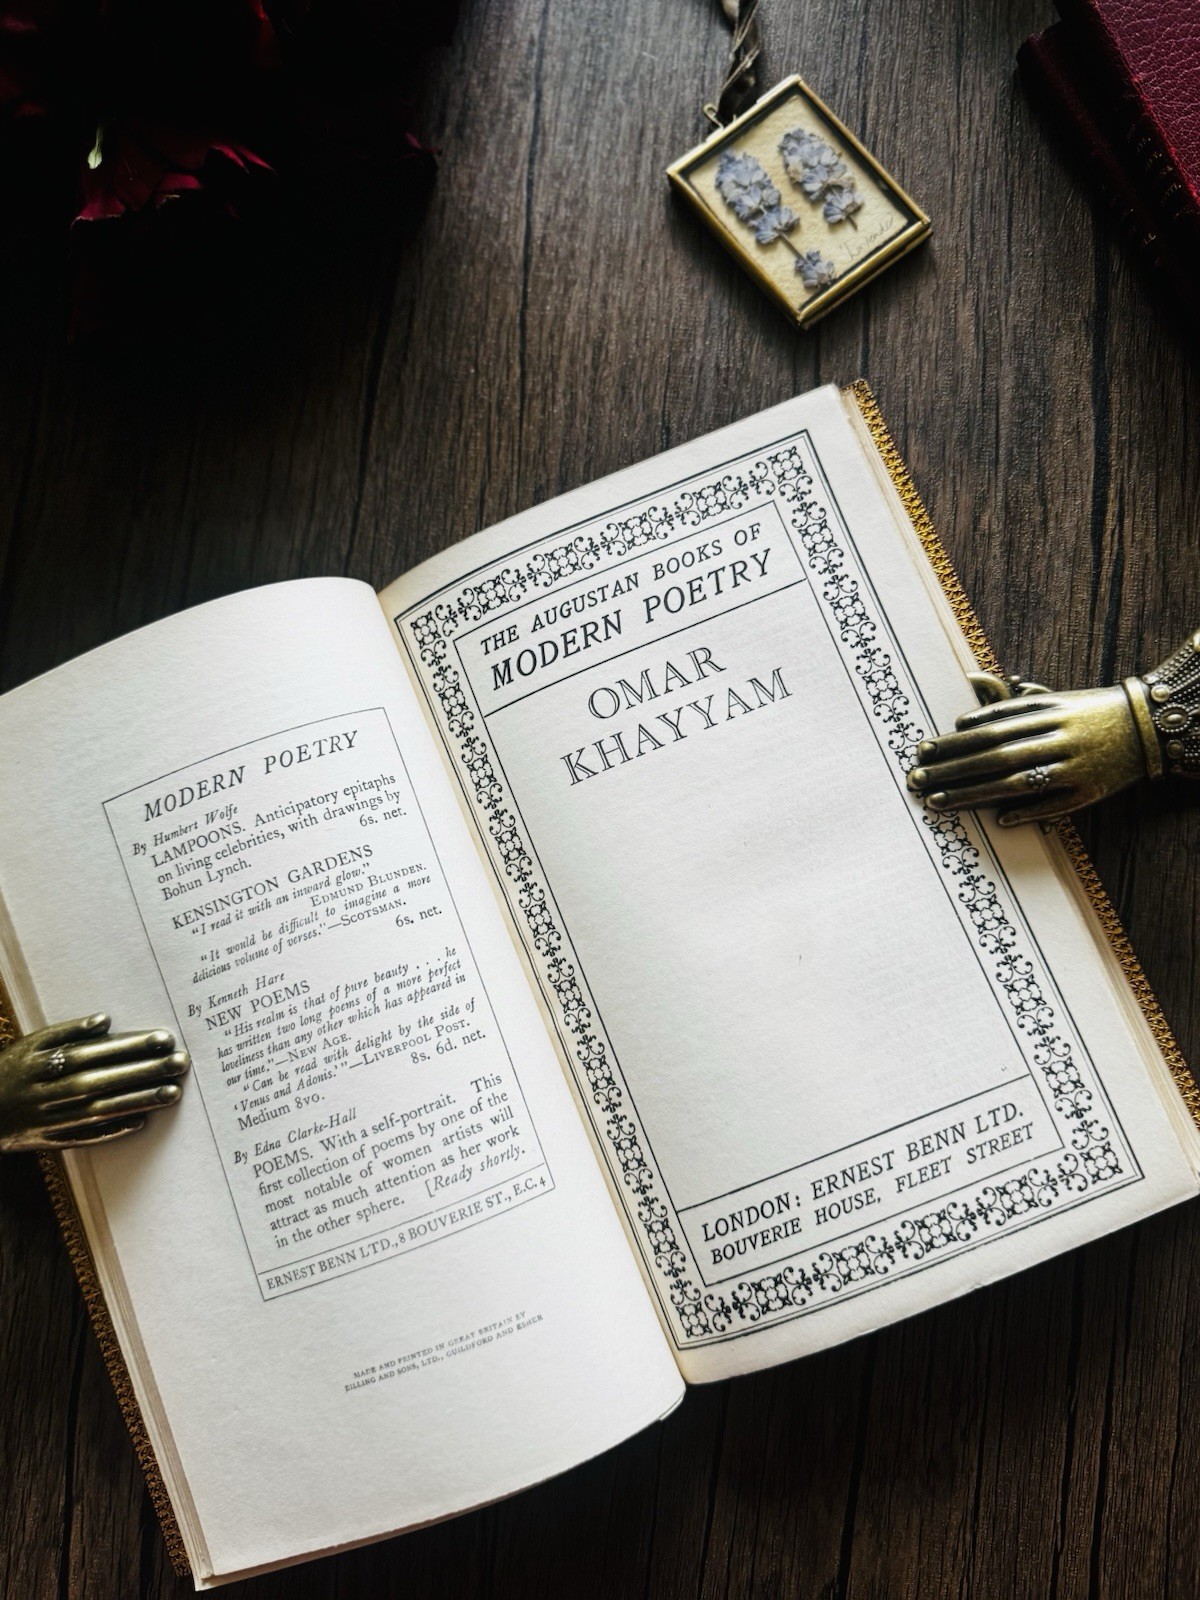 MODERN POETRY
By Humbert Wolfe
LAMPOONS. Anticipatory epitaphs
on living celebrities, with drawings by
Bohun Lynch. 6s. net.
KENSINGTON GARDENS
“I read it with an inward glow.”
EDMUND BLUNDEN.
“It would be difficult to imagine a more
delicious volume of verses.”—SCOTSMAN.
6s. net.
By Kenneth Hare
NEW POEMS
“His realm is that of pure beauty . . . he
has written two long poems of a more perfect
loveliness than any other which has appeared in
our time.”—NEW AGE.
“Can be read with delight by the side of
‘Venus and Adonis.’”—LIVERPOOL POST.
Medium 8vo. 8s. 6d. net.
By Edna Clarke-Hall
POEMS. With a self-portrait. This
first collection of poems by one of the
most notable of women artists will
attract as much attention as her work
in the other sphere. [Ready shortly.
ERNEST BENN LTD., 8 BOUVERIE ST., E.C. 4
MADE AND PRINTED IN GREAT BRITAIN BY
BILLING AND SONS, LTD., GUILDFORD AND ESHER
THE AUGUSTAN BOOKS OF
MODERN POETRY
OMAR
KHAYYAM
LONDON: ERNEST BENN LTD.
BOUVERIE HOUSE, FLEET STREET